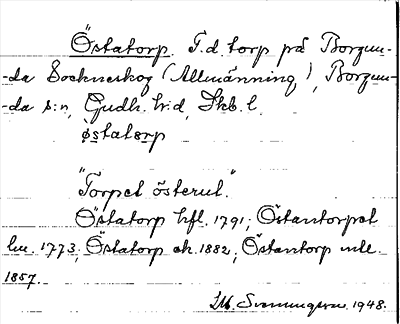 Östatorp. F.d. torp på Borgun-
-da Sockneskog (Allmänning), Borgun-
-da s:n, Gudh. h:d, Skb. l.
østatorp
"Torpet österut."
Östatorp hfl. 1791; Östantorpet
hu. 1773; Östatorp ek. 1882; Östantorp
1857.
Svenningsson 1948.